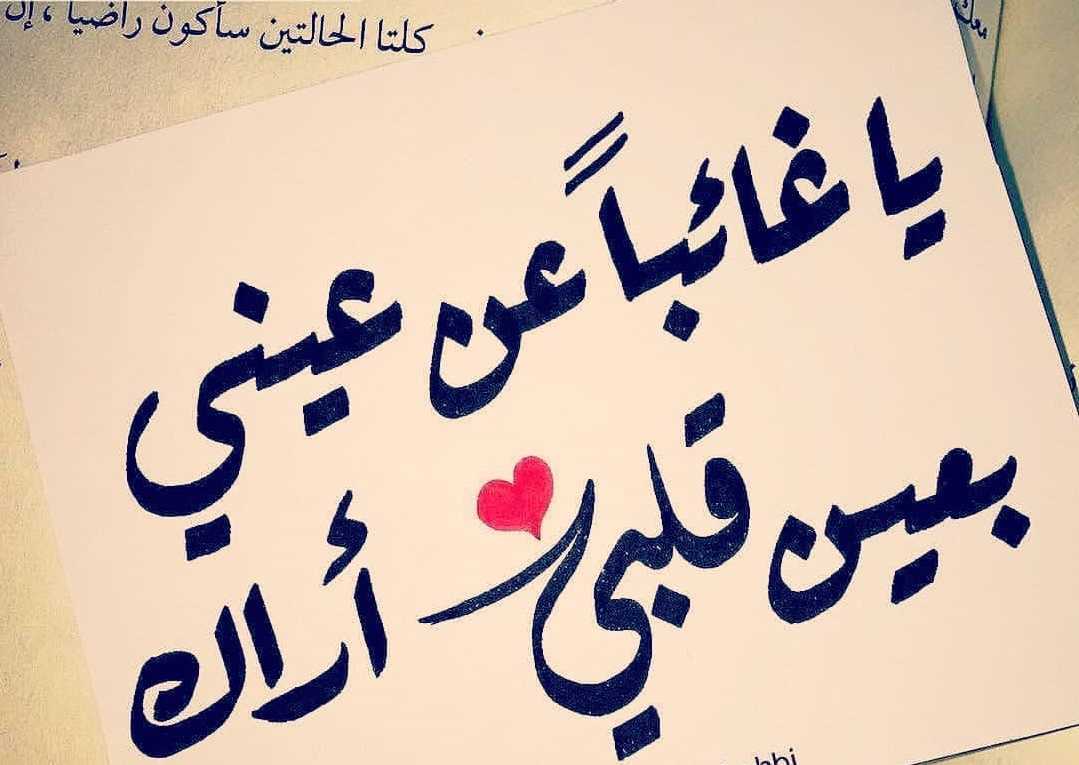 كلتا الحالتين سأكون راضيا ، إن
معك
يا غائباً عن عيني
بعين قلبي أراك